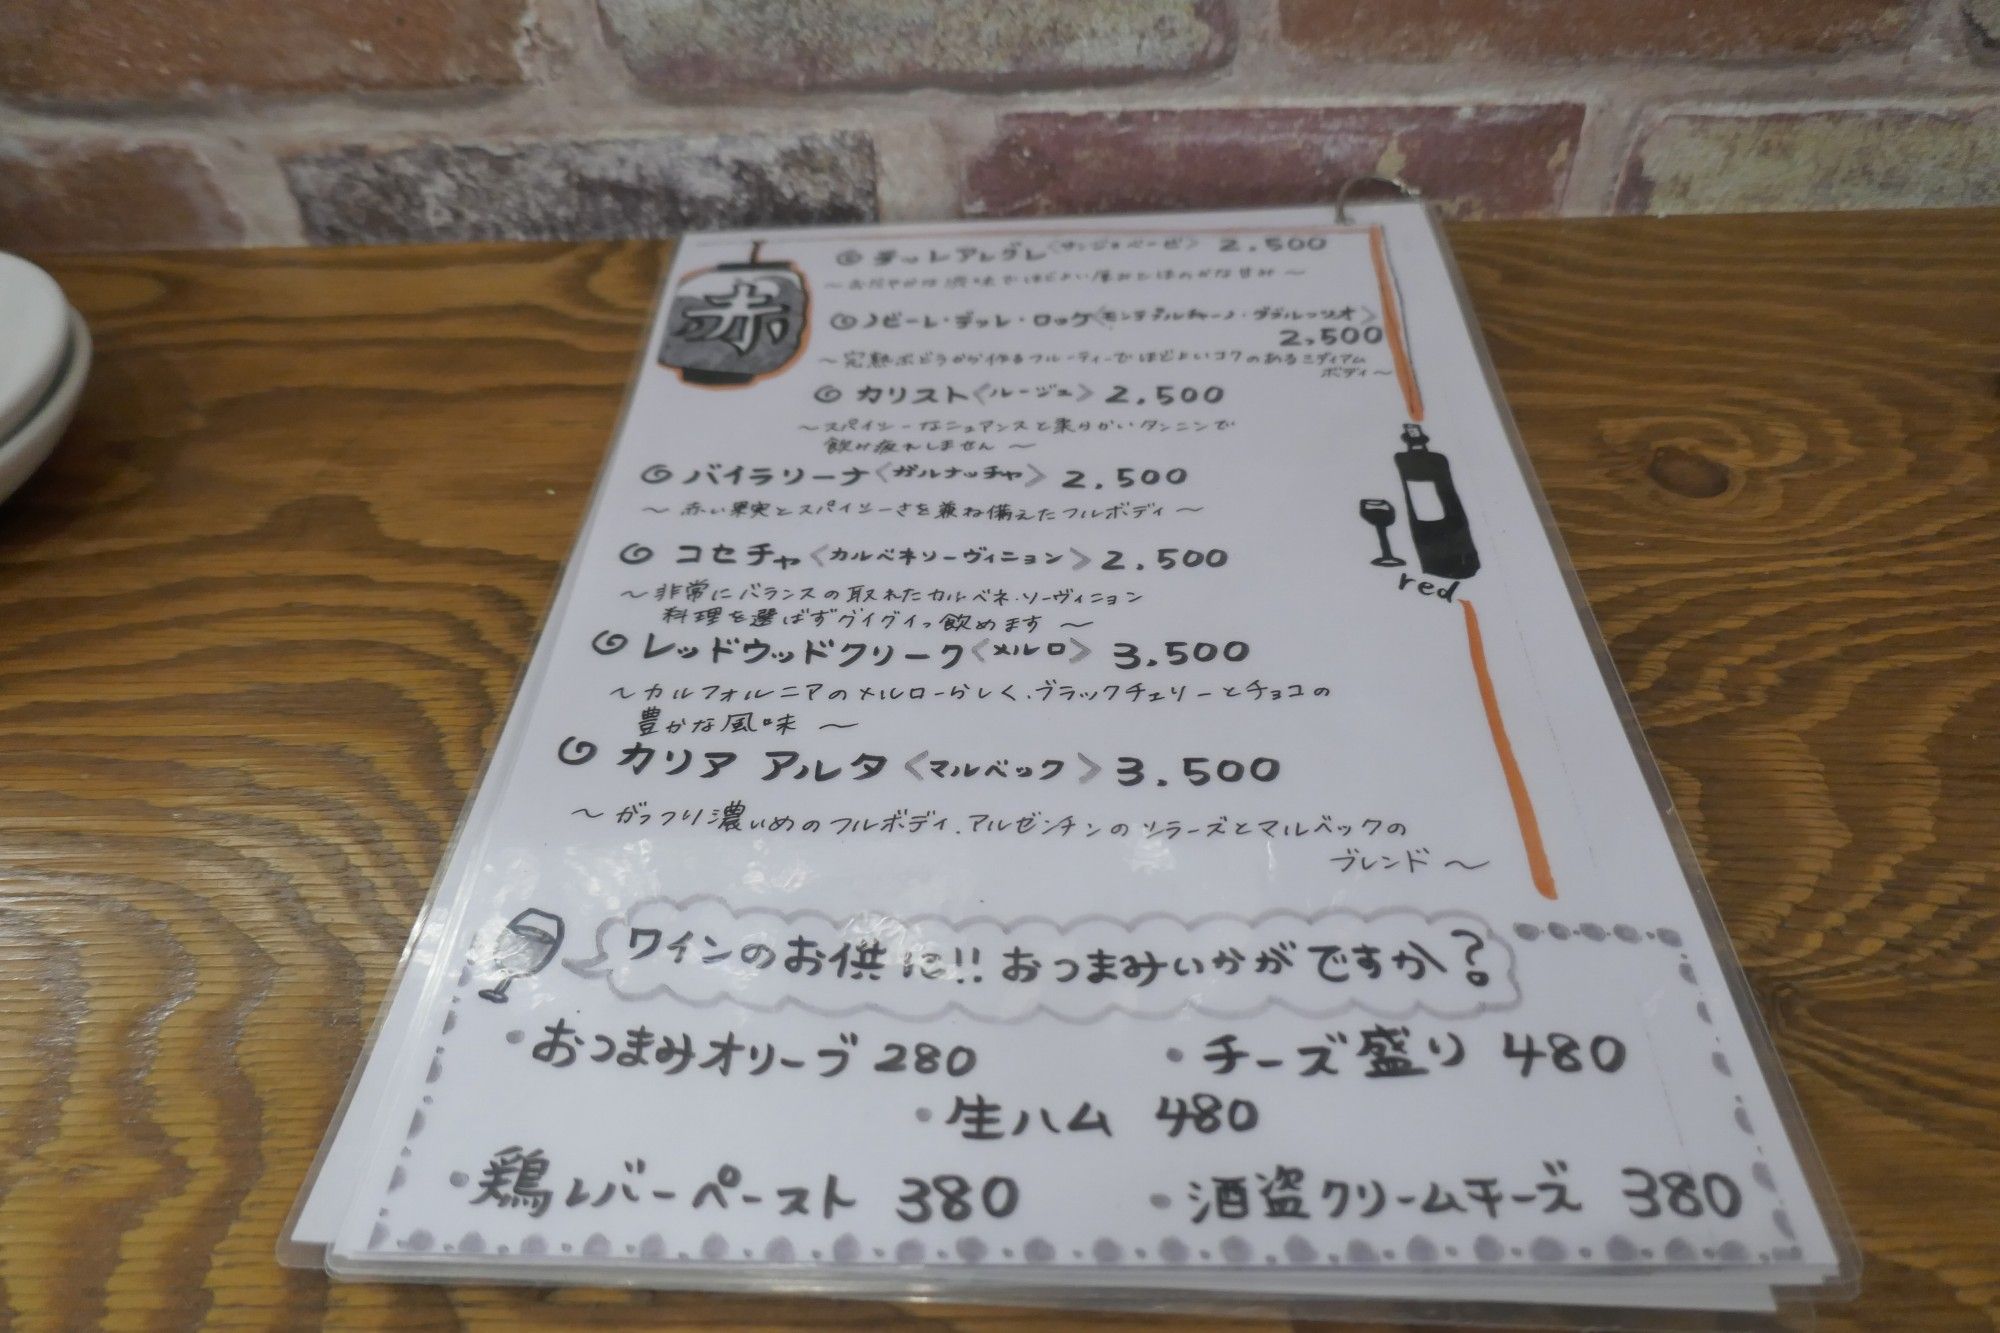 赤
テッレアレグレ〈サンジョベーゼ〉 2.500
〜おだやかな渋味でほどよい厚みとほのかな甘み〜
ノビーレ・デッレ・ロッケ〈モンテプルチャーノ・ダブルッツオ〉
2,500
〜完熟ぶどうから作るフルーティーでほどよいコクのあるミディアム
ボディ〜
カリスト〈ルージュ〉 2.500
〜スパイシーなニュアンスと柔らかいタンニンで
飲み疲れしません〜
バイラリーナ〈ガルナッチャ〉 2.500
〜赤い果実とスパイシーさを兼ね備えたフルボディ〜
コセチャ〈カルベネソーヴィニョン〉 2.500
〜非常にバランスの取れたカルベネ・ソーヴィニョン
料理を選ばずグイグイっ飲めます〜
red
レッドウッドクリーク〈メルロ〉 3.500
〜カルフォルニアのメルローらしく、ブラックチェリーとチョコの
豊かな風味〜
カリア アルタ〈マルベック〉 3.500
〜がっつり濃いめのフルボディ、アルゼンチンのシラーズとマルベックの
ブレンド〜
ワインのお供に!! おつまみいかがですか?
・おつまみオリーブ 280
・チーズ盛り 480
・生ハム 480
・鶏レバーペースト 380
・酒盗クリームチーズ 380